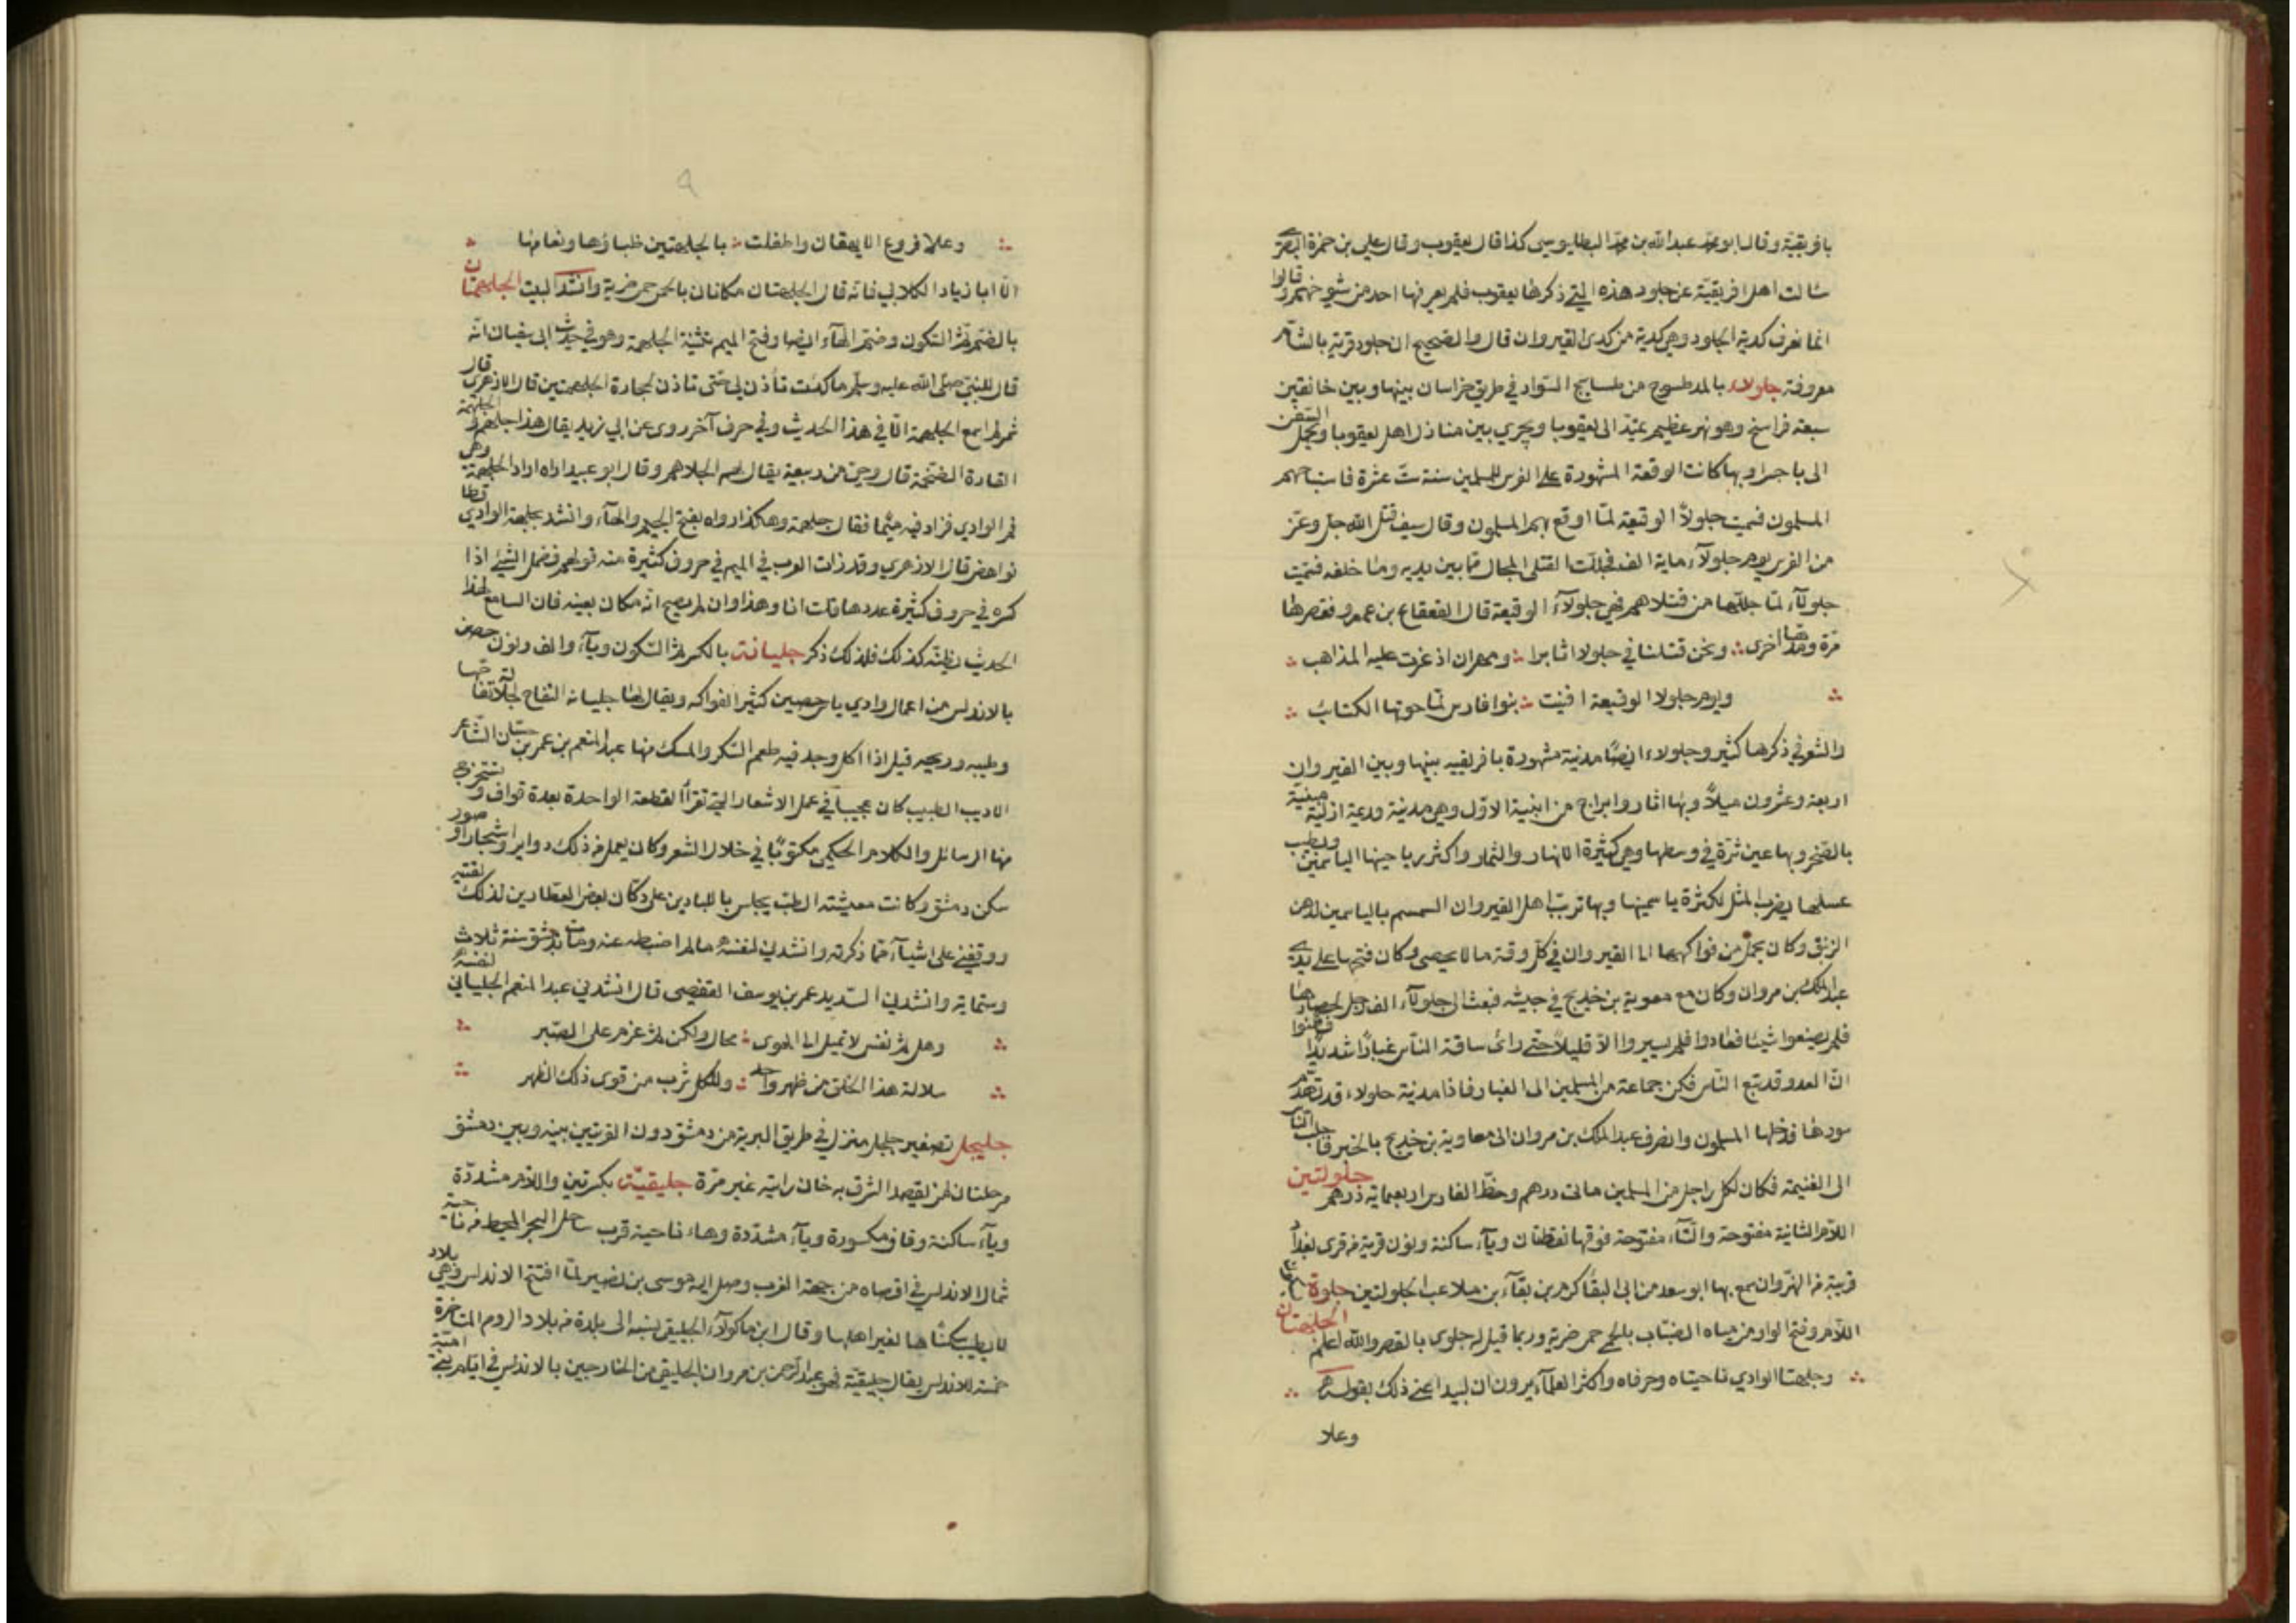 بافريقية وقال ابو محمد عبد الله بن محمد البطليوسي كذا قال يعقوب وقال علي بن حمزة البصري
سالت اهل افريقية عن جلود هذه التي ذكرها يعقوب فلم يعرفها احد من شيوخهم وقالوا
انما نعرف كدية الجلود وهي كدية من كدى القيروان قال والصحيح ان جلود قرية بالشام
معروفة جلولاء بالمد طسوج من طساسيج السواد في طريق خراسان بينها وبين خانقين
سبعة فراسخ وهو نهر عظيم يمتد الى بعقوبا ويجري بين منازل اهل بعقوبا ويحمل السفن
الى باجسرا وبها كانت الوقعة المشهورة على الفرس للمسلمين سنة ست عشرة فاستباحهم
المسلمون فسميت جلولا الوقيعة لما اوقع بهم المسلمون وقال سيف قتل الله جل وعز
من الفرس يوم جلولآء ماية الف فجللت القتلى المجال ما بين يديه وما خلفه فسميت
جلولآء لما جللها من قتلاهم فهي جلولآء الوقيعة قال القعقاع بن عمرو فقصرها
مرة ومدها اخرى ونحن قتلنا في جلولا اثابرا ومهران اذ عزت عليه المذاهب
ويوم جلولا الوقيعة افنيت بنوا فارس لما حوتها الكتائب
والشعر في ذكرها كثير وجلولاء ايضًا مدينة مشهورة بافريقيه بينها وبين القيروان
اربعة وعشرون ميلاً وبها اثار وابراج من ابنية الاول وهي مدينة قديمة ازلية مبنية
بالصخر وبها عين ثرة في وسطها وهي كثيرة الانهار والثمار واكثر رياحينها الياسمين وبطيب
عسلها يضرب المثل لكثرة ياسمينها وبها تربب اهل القيروان السمسم بالياسمين لدهن
الزنبق وكان يحمل من فواكهها الى القيروان في كل وقت ما لا يحصى وكان فتحها على يدي
عبد الملك بن مروان وكان مع معوية بن خديج في جيشه فبعث الى جلولآء الف رجل لحصارها
فلم يصنعوا شيئا فعادوا فلم يسيروا الا قليلاً حتى رائ ساقة الناس غبارًا شديدًا فظنوا
ان العدو قد تبع الناس فكر جماعة من المسلمين الى الغبار فاذا مدينة جلولاء قد تهدم
سورها فدخلها المسلمون وانصرف عبد الملك بن مروان الى معاوية بن خديج بالخبر فاجلب الناس
الى الغنيمة فكان لكل راجل من المسلمين مائتى درهم وحظ الفارس اربعماية درهم جلولتين
اللام الثانية مفتوحة والتاء مفتوحة فوقها نقطتان وياء ساكنة ونون قرية من قرى بغداد
قريبة من النهروان سمع بها ابو سعد من ابى البقا كرم بن بقآء بن ملاعب الجلولتيني جلوة بسكون
اللام وفتح الواو من مياه الضباب بالحمى حمى ضرية وربما قيل له جلوى بالقصر والله اعلم الجلهتان
وجلهتا الوادي ناحيتاه وحرفاه واكثر العلمآء يرون ان لبيدا عنى ذلك بقوله
وعلا
وعلا فروع الايهقان واطفلت بالجلهتين ظباؤها ونعامها
الا ابا زياد الكلابي فانه قال الجلهتان مكانان بالحمى حمى ضرية وانشد البيت الجلهمتان
بالضم ثم السكون وضم الهاء ايضا وفتح الميم تثنية الجلهمة وهو في حديث ابى سفيان انه
قال للنبي صلى الله عليه وسلم ما كدت تأذن لي حتى تاذن لحجارة الجلهمتين قال الازهرى قال
شمر لم اسمع الجلهمة الا في هذا الحديث وفي حرف آخر روى عن ابي زيد يقال هذا جلهم والجلهمة
القارة الضخمة قال وحي من ربيعة يقال لهم الجلاهم وقال ابو عبيد اراه اراد الجلهة وهي
فم الوادي فزاد فيه ميما فقال جلهمة وهكذا رواه بفتح الجيم والهآء وانشد بجلهة الوادي قطا
نواهض قال الازهري وقد زادت العرب في الميم في حروف كثيرة منه قولهم قصمل الشئ اذا
كسره في حروف كثيرة عددها قلت انا وهذا وان لم يصح انه مكان بعينه فان السامع لهذا
الحديث يظنه كذلك فلذلك ذكر جليانة بالكسر ثم السكون وياء والف ونون حصن
بالاندلس من اعمال وادي ياش حصين كثير الفواكه ويقال لها جليانة التفاح لجلالة تفاحها
وطيبه وريحه قيل اذا اكل وجد فيه طعم السكر والمسك منها عبد المنعم بن عمر بن حسان الشاعر
الاديب الطبيب كان عجيباً في عمل الاشعار التي تقرأ القطعة الواحدة بعدة قواف ويستخرج
منها الرسائل والكلام الحكمي مكتوبًا في خلال الشعر وكان يعمل من ذلك دواير واشجارا وصور
سكن دمشق وكانت معيشته الطب يجلس باللبادين على دكان بعض العطارين لذلك لقيته
ووقفني على اشيآء مما ذكرته وانشدني لنفسه ما لم اضبطه عنه ومات بدمشق سنة ثلاث
وستماية وانشدني السديد عمر بن يوسف القفصى قال انشدني عبد المنعم الجلياني لنفسه
وهل ثم نفس لا تميل الى الهوى محال ولكن ثم عزم على الصبر
سلالة هذا الخلق من ظهر واحد وللكل شرب من قوى ذلك الظهر
جليجل تصغير جلجل منزل في طريق البرية من دمشق دون القريتين بينه وبين دمشق
مرحلتان لمن يقصد الشرق به خان رايته غير مرة جليقية بكسرتين واللام مشددة
وياء ساكنة وقاف مكسورة وياء مشددة وهاء ناحية قرب ساحل البحر المحيط من ناحية
شمال الاندلس في اقصاه من جهة الغرب وصل اليه موسى بن نصير لما افتتح الاندلس وهي بلاد
لا يطيب سكناها لغير اهلها وقال ابن ماكولاء الجليقي نسبة الى بلدة من بلاد الروم المتاخمة
للاندلس يقال جليقية نحو عبد الرحمن بن مروان الجليقي من الخارجين بالاندلس في ايام بني امية